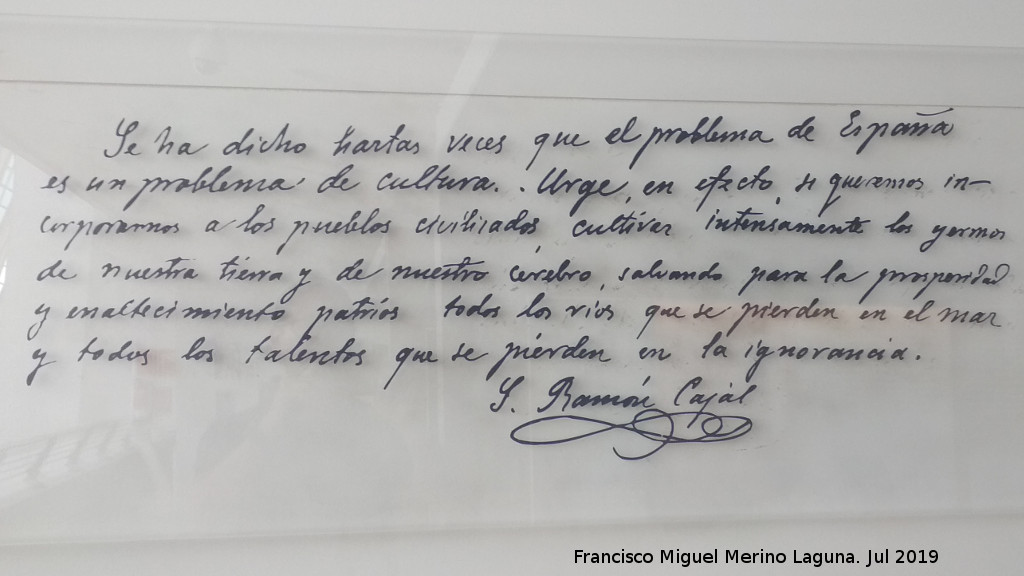 Se ha dicho hartas veces que el problema de España
es un problema de cultura. Urge, en efecto, si queremos in-
corporarnos a los pueblos civilizados, cultivar intensamente los yermos
de nuestra tierra y de nuestro cerebro, salvando para la prosperidad
y enaltecimiento patrios todos los rios que se pierden en el mar
y todos los talentos que se pierden en la ignorancia.
S. Ramón Cajal
Francisco Miguel Merino Laguna. Jul 2019